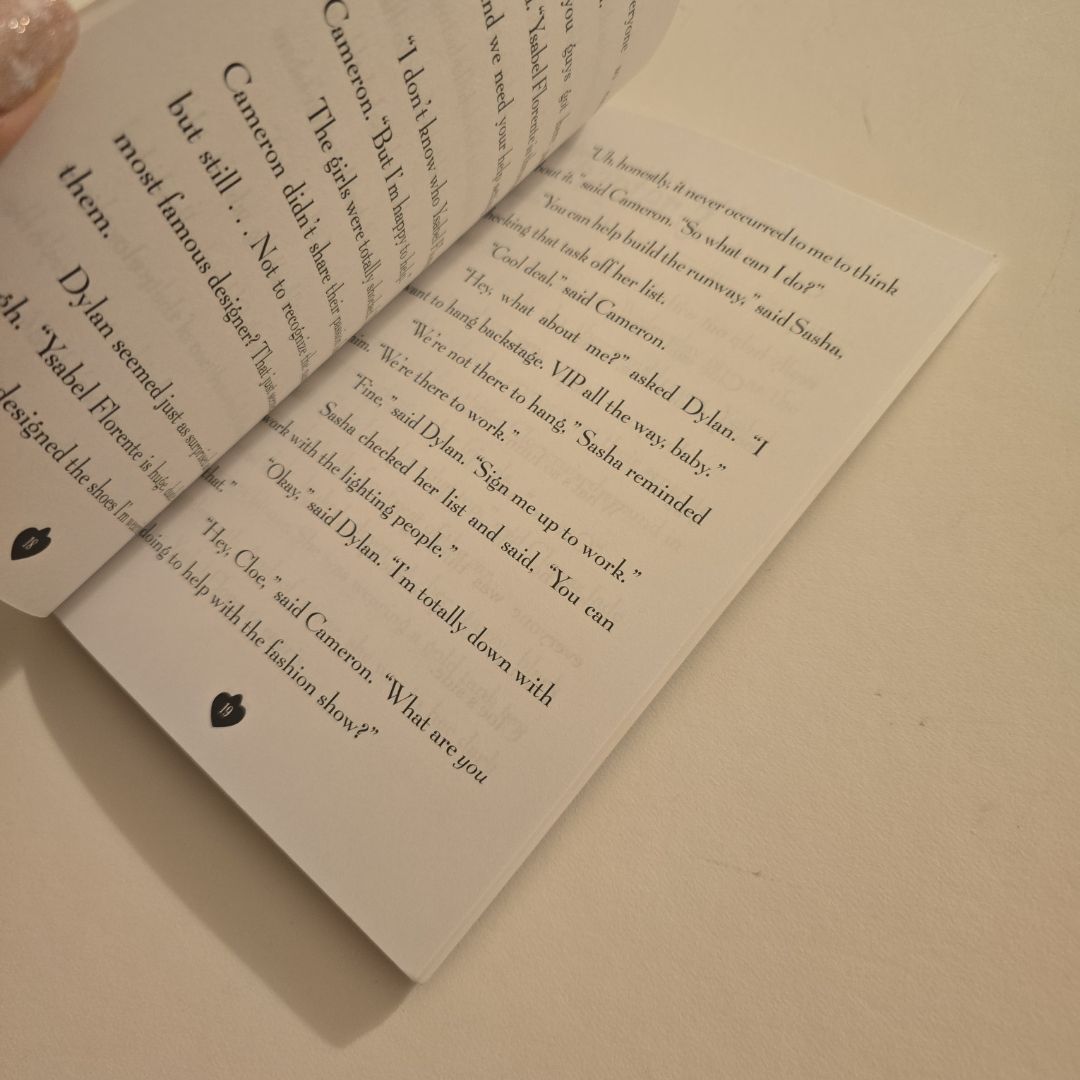 eryone
you guys got
"Ysabel Florente
nd we need your help
"I don't know who Ysabel
Cameron. "But I'm happy to help
The girls were totally shocked
Cameron didn't share their passion
but still . . . Not to recognize the
most famous designer? That just
them.
Dylan seemed just as surprised
gh. "Ysabel Florente is huge,
designed the shoes I'm
18
"Uh honestly, it never occurred to me to think
bout it," said Cameron. "So what can I do?"
"You can help build the runway," said Sasha,
hecking that task off her list.
"Cool deal," said Cameron.
"Hey, what about me?" asked Dylan. "I
ant to hang backstage. VIP all the way, baby."
"We're not there to hang," Sasha reminded
him. "We're there to work."
"Fine," said Dylan. "Sign me up to work."
Sasha checked her list and said, "You can
work with the lighting people."
"Okay," said Dylan. "I'm totally down with
that."
"Hey, Cloe," said Cameron. "What are you
doing to help with the fashion show?"
19